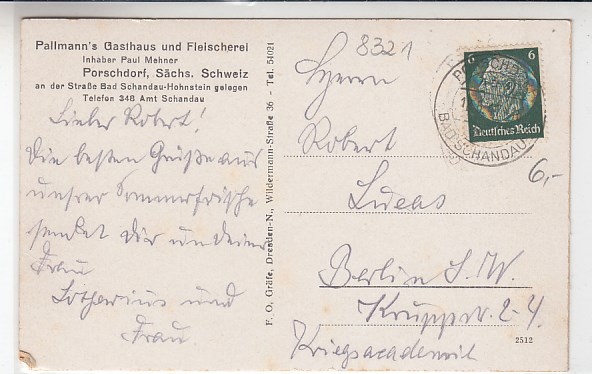 Pallmann's Gasthaus und Fleischerei
Inhaber Paul Mehner
Porschdorf, Sächs. Schweiz
an der Straße Bad Schandau-Hohnstein gelegen
Telefon 348 Amt Schandau
Lieber Robert!
Die besten Grüße aus
unsrer Sommerfrische
sendet dir und deiner
Frau
Lotharius und
Frau.
F. O. Gräfe, Dresden-N., Wildermann-Straße 36 - Tel. 54021
8321
Herrn
Robert
Lucas
Berlin S.W.
Kruppstr. 2-4.
Kriegsacademie
2512
6 6
Deutsches Reich
BAD SCHANDAU
6,-